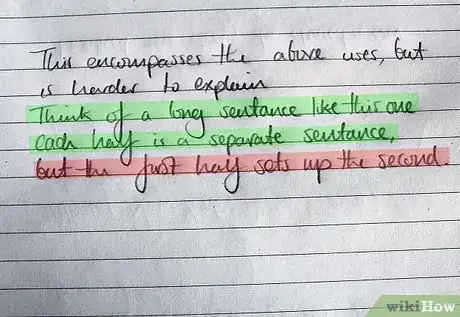 This encompasses the above uses, but
is harder to explain
Think of a long sentence like this one
each half is a separate sentence,
but the first half sets up the second.
wikiHow